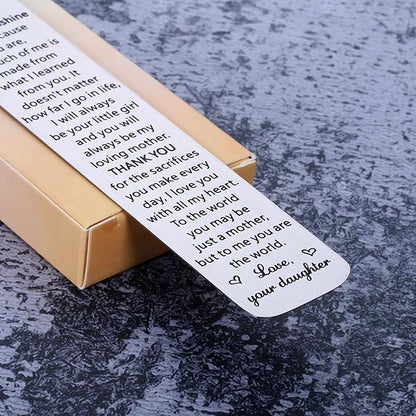 nshine
cause
you are,
much of me is
made from
what I learned
from you. It
doesn't matter
how far I go in life,
I will always
be your little girl
and you will
always be my
loving mother.
THANKYOU
for the sacrifices
you make every
day, I love you
with all my heart.
To the world
you may be
just a mother,
but to me you are
the world.
Love,
your daughter